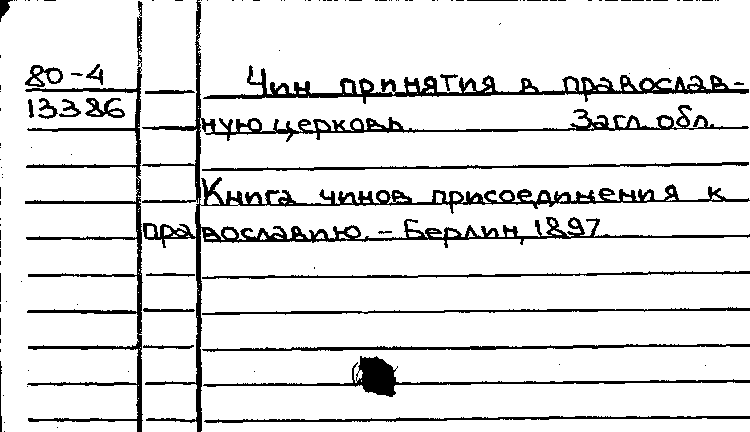 80-4 Чин принятия в православ-
13386 ную церковь. Загл. обл.
Книга чинов присоединения к
православию. - Берлин, 1897.